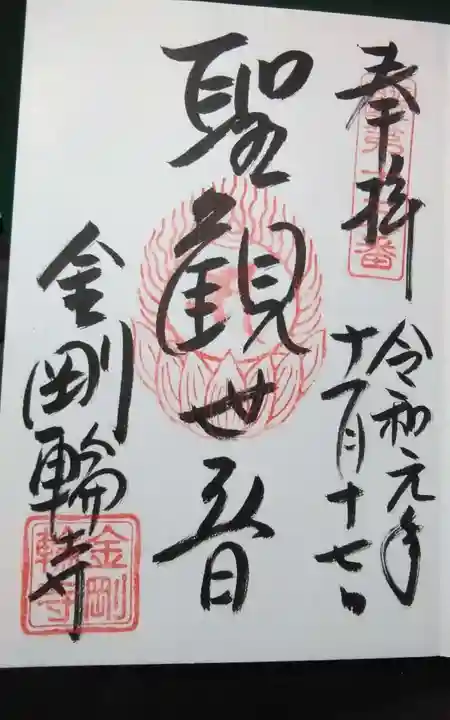 奉拝
令和元年
十一月十七日
聖観世音
金剛輪寺
金剛輪寺